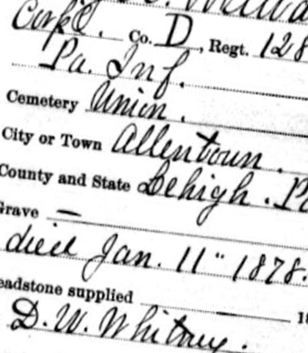 Corp'l. Co. D, Regt. 128
Pa. Inf.
Cemetery Union.
City or Town Allentown.
County and State Lehigh. Pa
Grave —
died Jan. 11" 1878.
eadstone supplied 18
D. W. Whitney.